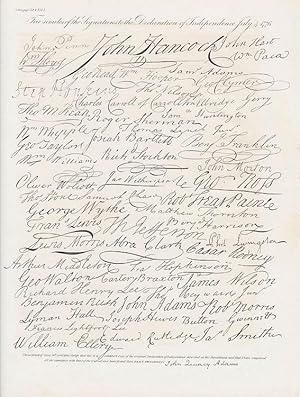 Fac similes of the Signatures to the Declaration of Independence July 4 1776
John Penn John Hancock John Hart
Wm Hooper Wm Paca
Geo Read Saml Adams
Step Hopkins Tho Nelson jr Geo Clymer
Charles Carroll of Carrollton Elbridge Gerry
Tho M Kean Roger Sherman Saml Huntington
Wm Whipple Thomas Lynch Junr
Geo Taylor Josiah Bartlett Benj Franklin
Wm Williams Richd Stockton John Morton
Oliver Wolcott Jno Witherspoon Geo Ross
Thos Stone Samuel Chase Robt Treat Paine
George Wythe Matthew Thornton
Fran Lewis Th Jefferson Benj Harrison
Lewis Morris Abra Clark Caesar Rodney Phil Livingston
Arthur Middleton Fra Hopkinson
Geo Walton Carter Braxton James Wilson
Richard Henry Lee Thos Heyward Junr
Benjamin Rush John Adams Robt Morris
Lyman Hall Joseph Hewes Button Gwinnett
Francis Lightfoot Lee
William Ellery Edward Rutledge Jas Smith
John Quincy Adams